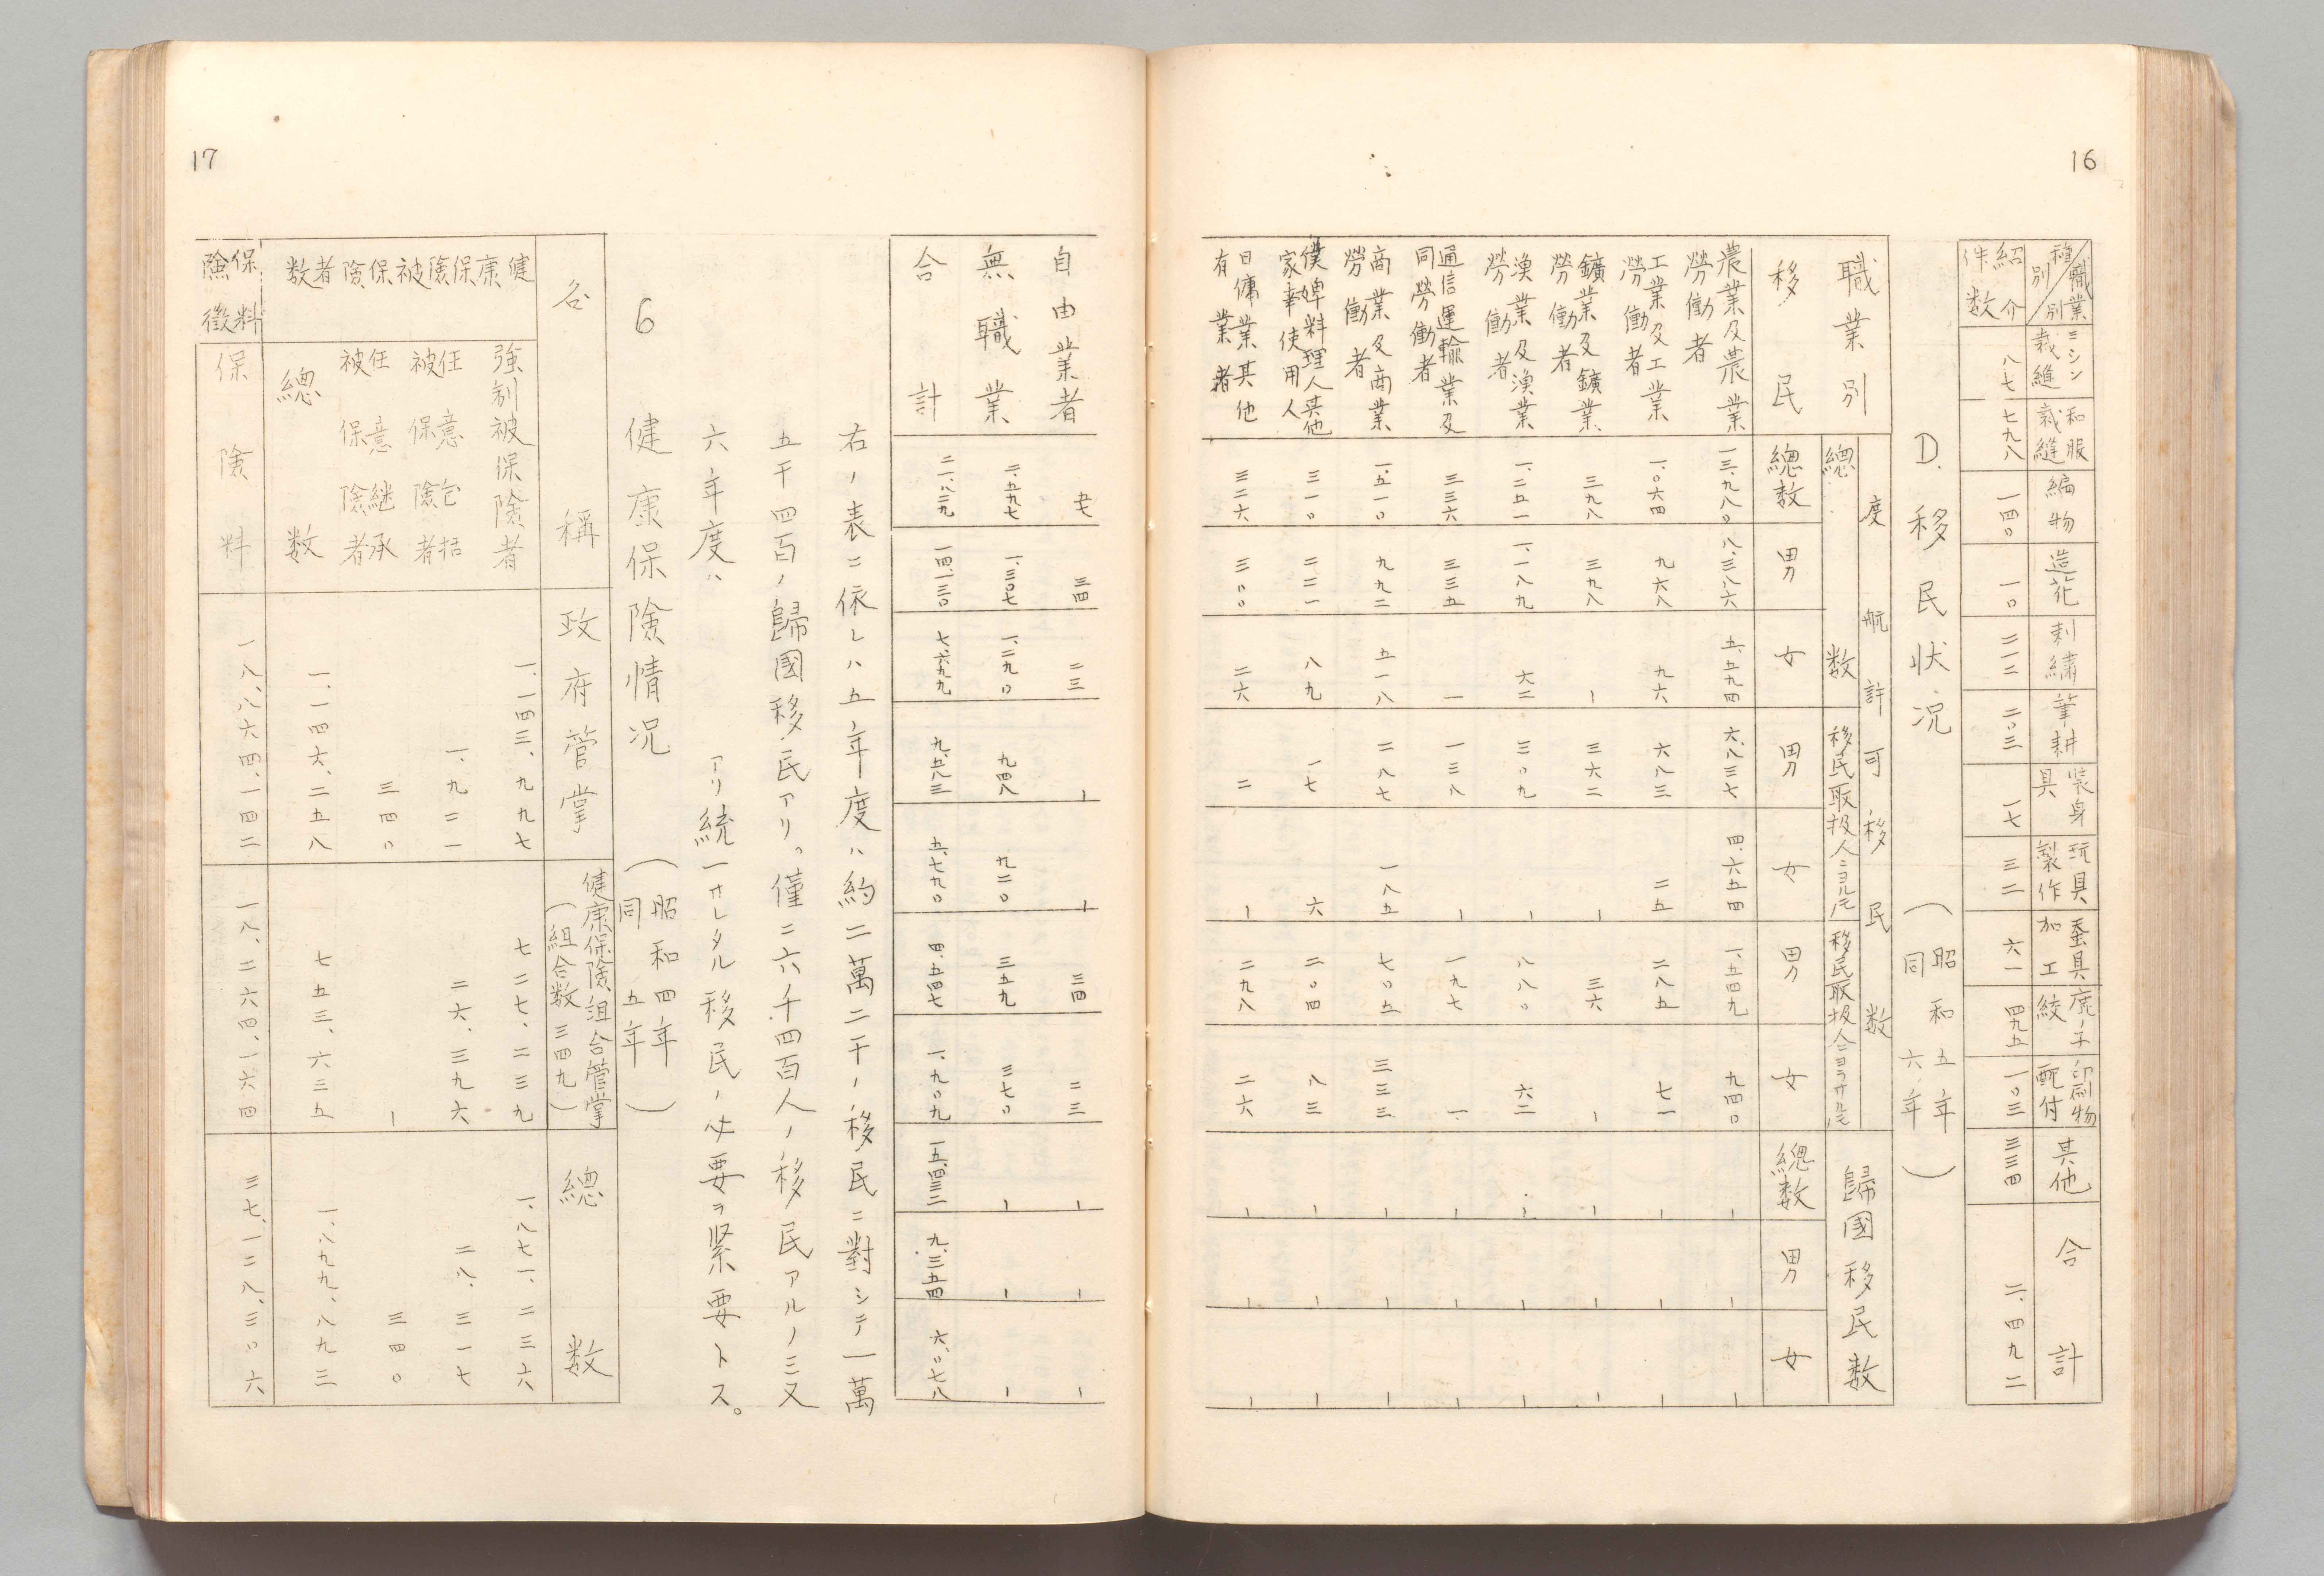 16
職業別
種別
紹介件数
ミシン裁縫 八七
和服裁縫 七九八
編物 一四〇
造花 一〇
刺繍 二一二
筆耕 二〇三
装身具 一七
玩具製作 三二
蚕具加工 六一
鹿ノ子絞 四九五
印刷物配付 一〇三
其他 三三四
合計 二、四九二
D. 移民状况 (昭和五年 同六年)
職業別
移民
度航許可移民数
總数
移民取扱人ニヨルモノ
移民取扱人ニヨラサルモノ
歸國移民数
總数 男 女 男 女 男 女 總数 男 女
農業及農業勞働者 一三、九八〇 八、三八六 五、五九四 六、八三七 四、六五四 一、五四九 九四〇 ー ー ー
工業及工業勞働者 一、〇六四 九六八 九六 六八三 二五 二八五 七一 ー ー ー
鑛業及鑛業勞働者 三九八 三九八 ー 三六二 ー 三六 ー ー ー ー
漁業及漁業勞働者 一、二五一 一、一八九 六二 三〇九 ー 八八〇 六二 ー ー ー
通信運輸業及同勞働者 三三六 三三五 一 一三八 ー 一九七 一 ー ー ー
商業及商業勞働者 一、五一〇 九九二 五一八 二八七 一八五 七〇五 三三三 ー ー ー
僕婢料理人其他家事使用人 三一〇 二二一 八九 一七 六 二〇四 八三 ー ー ー
日傭業其他有業者 三二六 三〇〇 二六 二 ー 二九八 二六 ー ー ー
17
自由業者 五七 三四 二三 ー ー 三四 二三 ー ー ー
無職業 二、五九七 一、三〇七 一、二九〇 九四八 九二〇 三五九 三七〇 ー ー ー
合計 二一、八二九 一四、一三〇 七、六九九 九、五八三 五、七九〇 四、五四七 一、九〇九 一五、四三二 九、三五四 六、〇七八
右ノ表ニ依レハ五年度ハ約二萬二千ノ移民ニ對シテ一萬
五千四百ノ歸國移民アリ。僅ニ六千四百人ノ移民アルノミ又
六年度ハ アリ統一サレタル移民ノ必要ヲ緊要トス。
6 健康保險情況 (昭和四年 同五年)
名稱 政府管掌 健康保險組合管掌(組合数三四九) 總数
健康保險被保險者数
強制被保險者 一、一四三、九九七 七二七、二三九 一、八七一、二三六
任意包括被保險者 一、九二一 二六、三九六 二八、三一七
任意継承被保險者 三四〇 ー 三四〇
總数 一、一四六、二五八 七五三、六三五 一、八九九、八九三
保險料徴
保險料 一八、八六四、一四二 一八、二六四、一六四 三七、一二八、三〇六